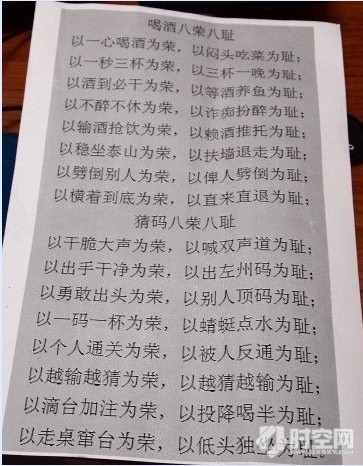 喝酒八荣八耻
以一心喝酒为荣，以闷头吃菜为耻；
以一秒三杯为荣，以三杯一晚为耻；
以酒到必干为荣，以等酒养鱼为耻；
以不醉不休为荣，以诈痴扮醉为耻；
以输酒抢饮为荣，以赖酒推托为耻；
以稳坐泰山为荣，以扶墙退走为耻；
以劈倒别人为荣，以俾人劈倒为耻；
以横着到底为荣，以直来直退为耻；
猜码八荣八耻
以干脆大声为荣，以喊双声道为耻；
以出手干净为荣，以出左州码为耻；
以勇敢出头为荣，以别人顶码为耻；
以一码一杯为荣，以蜻蜓点水为耻；
以个人通关为荣，以被人反通为耻；
以越输越猜为荣，以越猜越输为耻；
以滴台加注为荣，以投降喝半为耻；
以走桌窜台为荣，以低头独为耻。
时空网